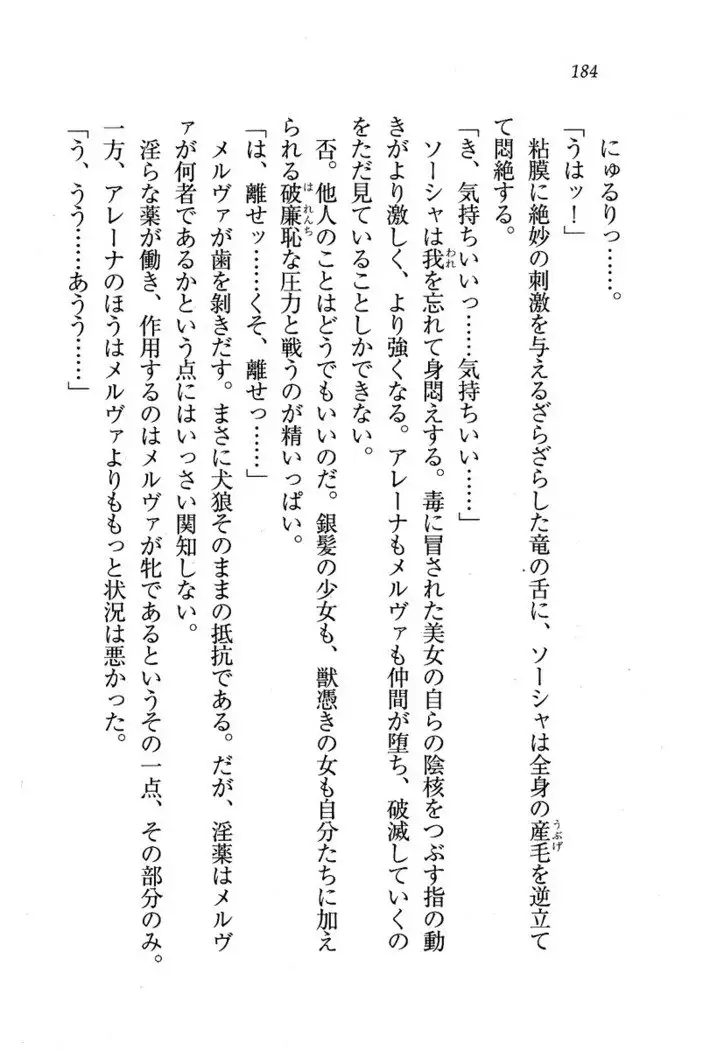 184
にゅるりっ……。
「うはッ！」
粘膜に絶妙の刺激を与えるざらざらした竜の舌に、ソーシャは全身の産毛を逆立て
て悶絶する。
「き、気持ちいいっ……気持ちいい……」
ソーシャは我を忘れて身悶えする。毒に冒された美女の自らの陰核をつぶす指の動
きがより激しく、より強くなる。アレーナもメルヴァも仲間が堕ち、破滅していくの
をただ見ていることしかできない。
否。他人のことはどうでもいいのだ。銀髪の少女も、獣憑きの女も自分たちに加え
られる破廉恥な圧力と戦うのが精いっぱい。
「は、離せッ……くそ、離せっ……」
メルヴァが歯を剝きだす。まさに犬狼そのままの抵抗である。だが、淫薬はメルヴ
ァが何者であるかという点にはいっさい関知しない。
淫らな薬が働き、作用するのはメルヴァが牝であるというその一点、その部分のみ。
一方、アレーナのほうはメルヴァよりももっと状況は悪かった。
「う、うう……あうう……」